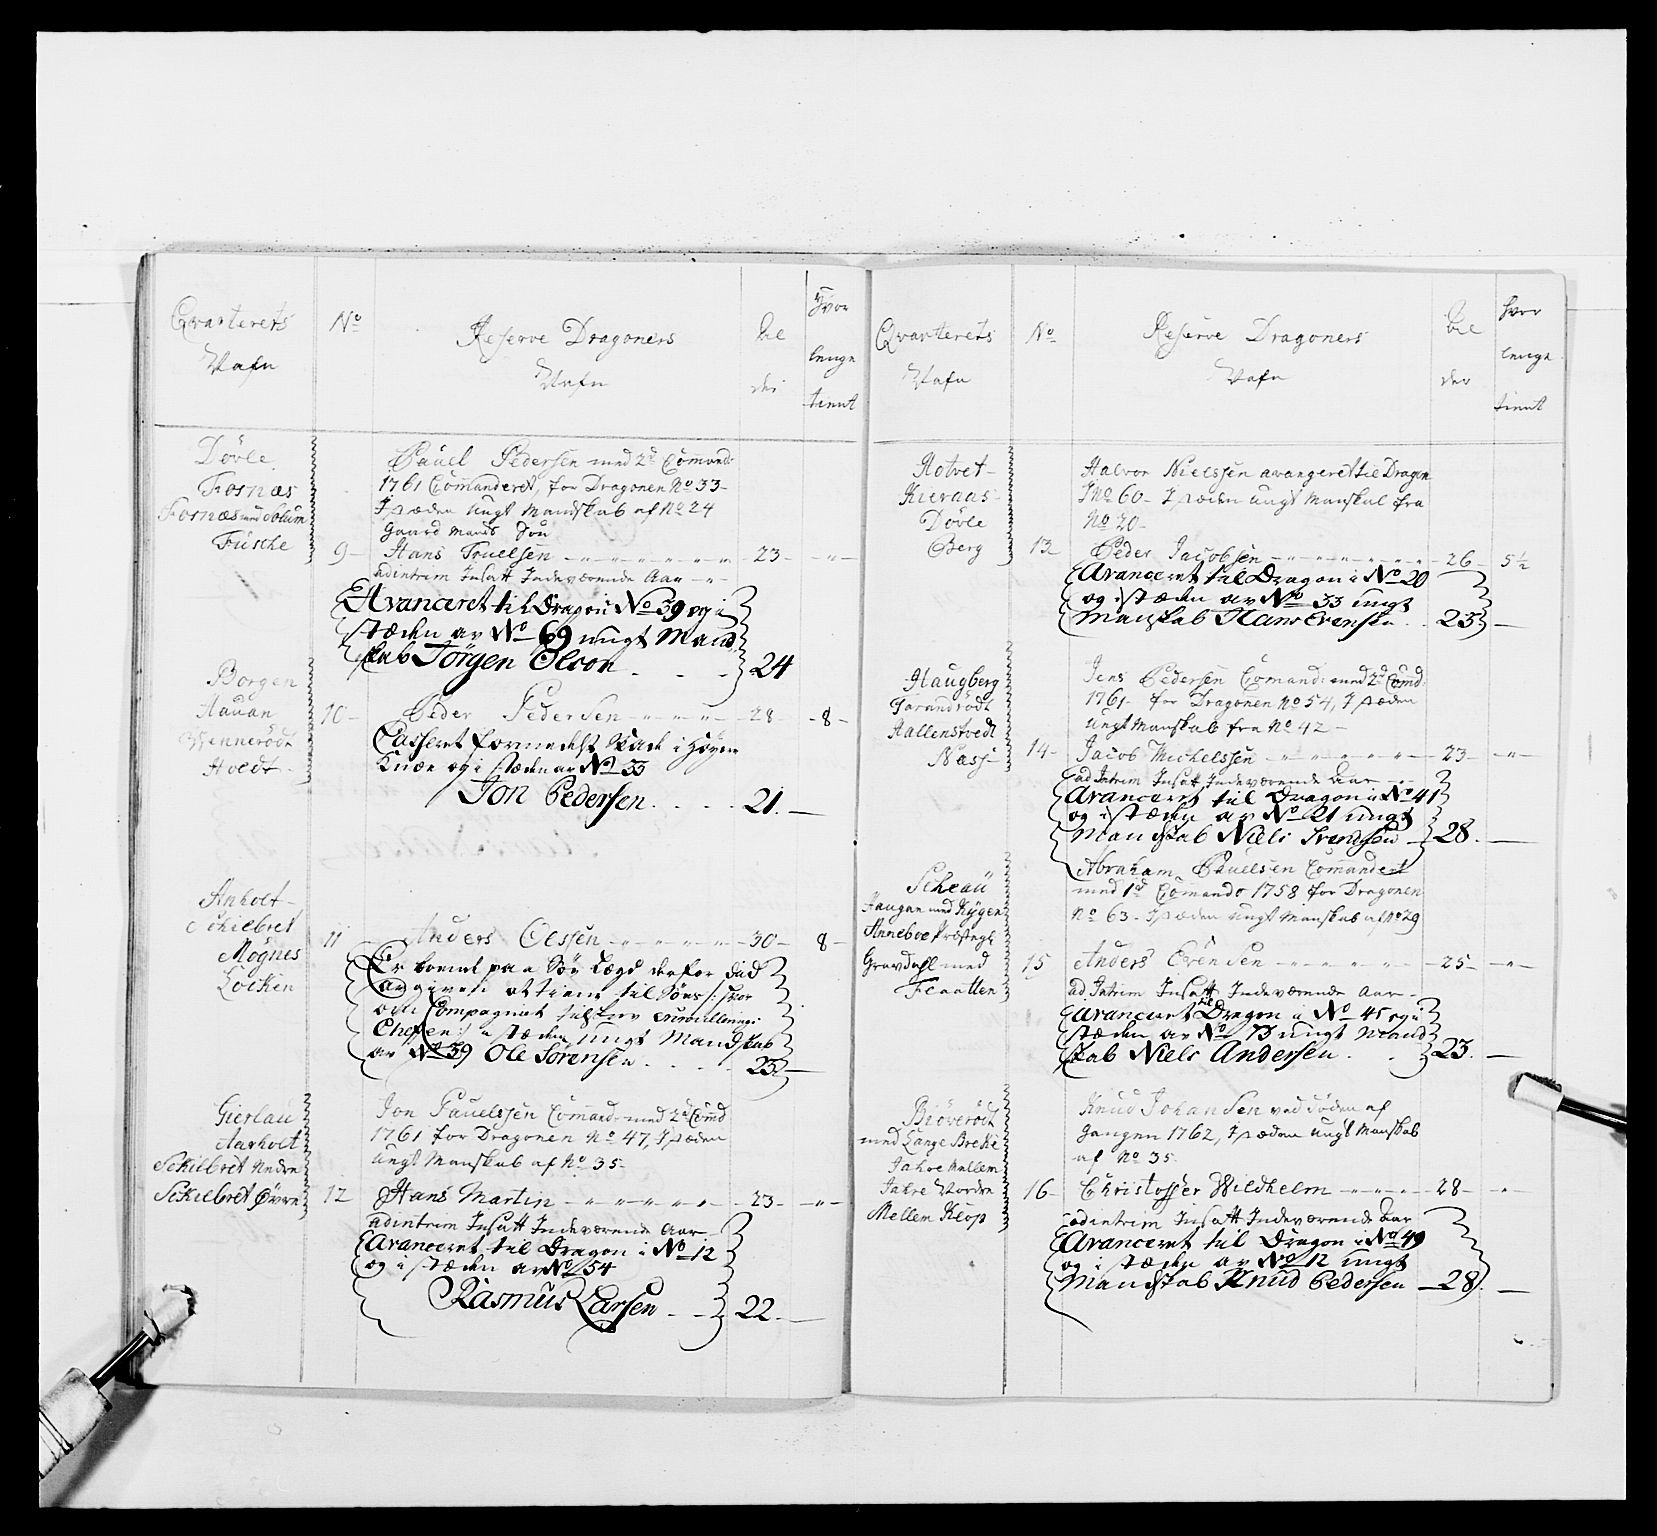 Qvarterets
Nafn
No
Reserve Dragoners
Nafn
hvor
lenge
tient
Døvle
Fosnæs
Fosnæs med Solum
Fuske
Pauel Pedersen med 2d Command:
1761 Commanderet, for Dragonen No 33
I stæden ungt Mandskab af No 24
Gaard Mands Søn
9 Hans Truelsen 23
adintrim Insatt Indeværende Aar
Avanceret til Dragon i No 39 og i
stæden av No 69 ungt Mand
skab Jørgen Olson 24
Borgen
Hauan
Wennerødt
Hvedt
10 Peder Pedersen 28 8
Casseret formedelst Skade i Høyre
Knæe og i stæden av No 33
Jon Pedersen 21
Anholt
Schilbret
Mognes
Løcken
11 Anders Olssen 30 8
Er komt paa Søe Lægd derfor
Compagniet
Chefen i stæden ungt Mandskab
av No 39 Ole Sørensen 23
Gierlau
Aarholt
Schilbret Nedre
Schilbret Øvre
Jon Pauelssen Command med 2d Comd
1761 for Dragonen No 47, I stæden
ungt Manskab af No 35
12 Hans Martin 23
adintrim Insatt Indeværende Aar
Avanceret til Dragon i No 12
og i stæden av No 54
Rasmus Larsen 22
Qvarterets
Nafn
No
Reserve Dragoners
Nafn
hvor
lenge
tient
Rotvet
Kieraas
Døvle
Berg
Halvor Nielssen avangeret til Dragon
I No 60 I stæden ungt Manskab fra
No 20
13 Peder Jacobsen 26 5½
Avanceret til Dragon i No 20
og i stæden av No 33 ungt
Manskab Hans Evensen 23
Haugberg
Torandrødt
Hallenstvedt
Næss
Jens Pedersen Comand: med 2d Comd:
1761 for Dragonen No 54, I stæden
ungt Manskab fra No 42
14 Jacob Michelssen 23
ad Intrim Insatt Indeværende Aar
Avanceret til Dragon i No 41
og i stæden av No 21 ungt
Mandskab Niels Svendsen 28
Scheau
Haugan med Rygen
Anneboe Præstegl
Gravdahl med
Flaatten
Abraham Pauelsen Commandert
med 1d Comando 1758 for Dragonen
No 63 I stæden ungt Manskab af No 29
15 Anders Evensen 25
ad Intrim Insatt Indeværende Aar
Avanceret til Dragon i No 45 og i
stæden av No 73 ungt Mand
skab Niels Andersen 23
Brøverødt
med Lange Brekke
Jahre Mellem
Jahre Nordre
Mellem Klop
Knud Johansen ved døden af
gangen 1762, I stæden ungt Manskab
af No 35
16 Christoffer Wildhelm 28
adintrim Insatt Indeværende Aar
Avanceret til Dragon i No 49
og i stæden av No 12 ungt
Mandskab Knud Pedersen 28